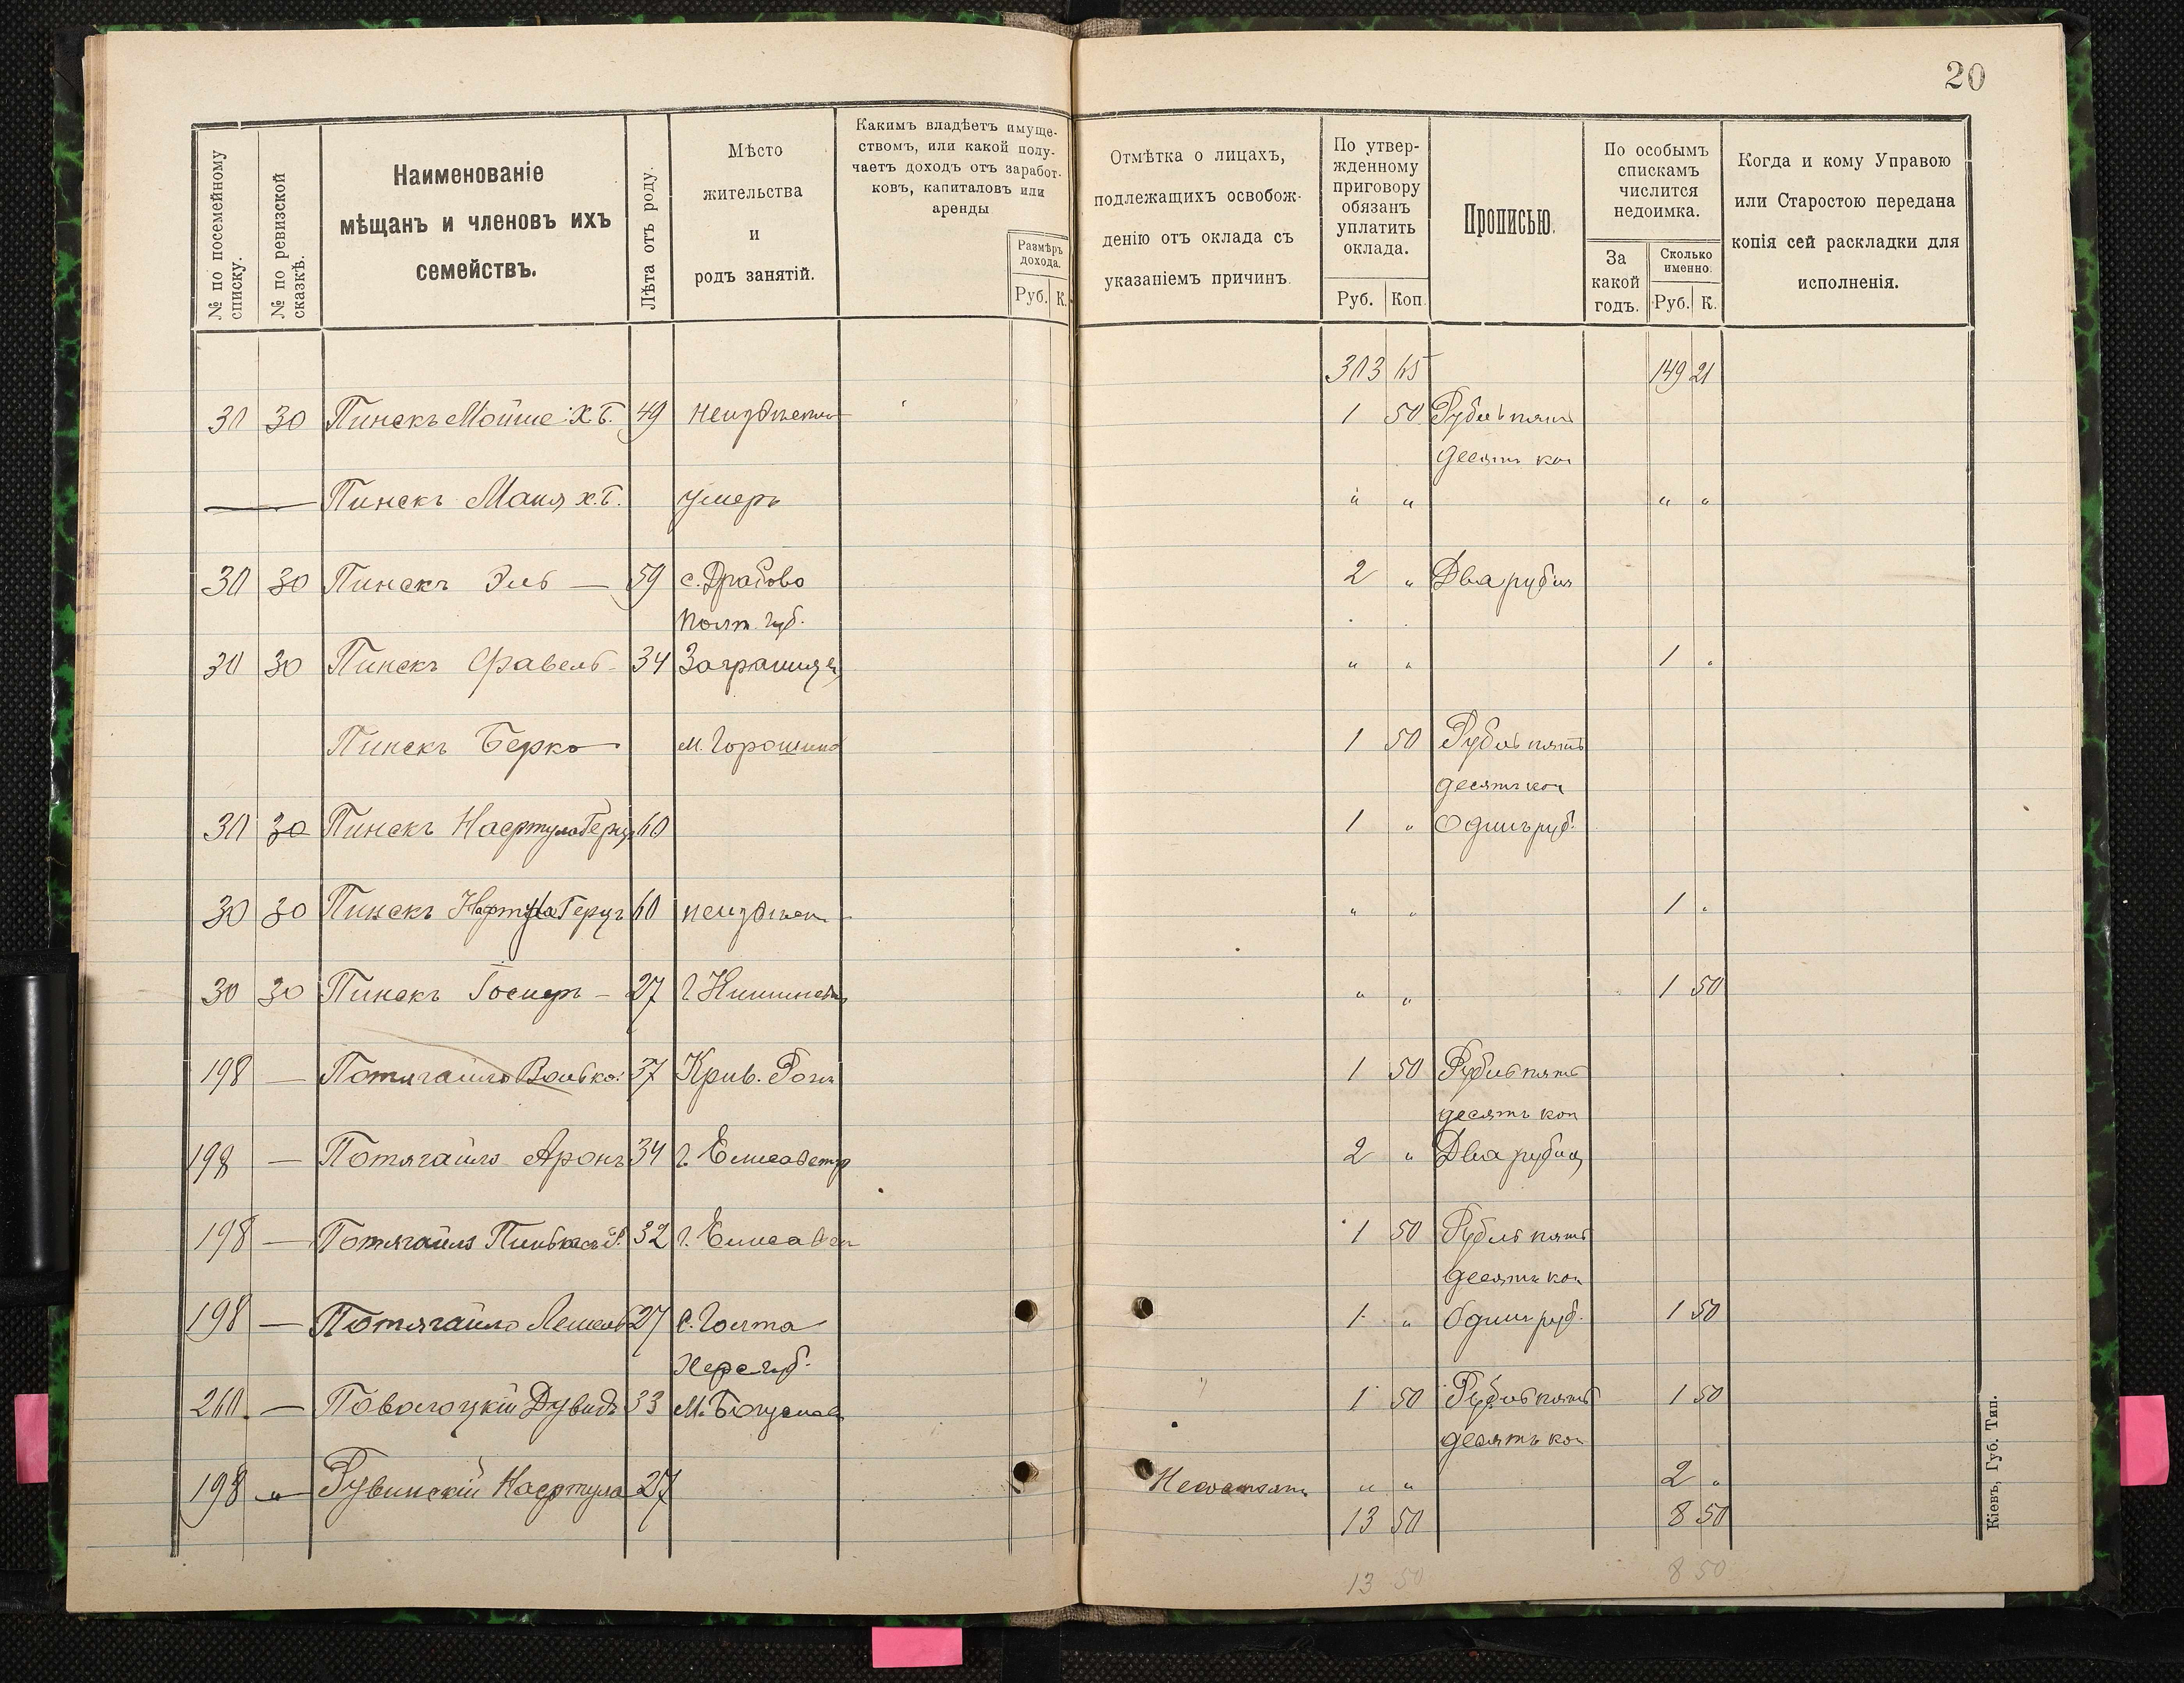 20
№ по посемейному списку.
№ по ревизской сказкѣ.
Наименованіе
мѣщанъ и членовъ ихъ
семействъ.
Лѣта отъ роду.
Мѣсто
жительства
и
родъ занятій.
Какимъ владѣетъ имуще-
ствомъ, или какой полу-
чаетъ доходъ отъ заработ-
ковъ, капиталовъ или
аренды
Размѣръ
дохода.
Руб. К.
Отмѣтка о лицахъ,
подлежащихъ освобож-
денію отъ оклада съ
указаніемъ причинъ.
По утвер-
жденному
приговору
обязанъ
уплатить
оклада.
Руб. Коп.
Прописью.
По особымъ
спискамъ
числится
недоимка.
За
какой
годъ.
Сколько
именно.
Руб. К.
Когда и кому Управою
или Старостою передана
копія сей раскладки для
исполненія.
303 65 149 21
30 30 Пинскъ Мойше: Х. Б. 49 неизвѣстно 1 50 Рубль пять
десятъ коп
— Пинскъ Маня х. Б. умеръ " " " "
30 30 Пинскъ Эль — 59 с. Драбово 2 " Два рубля
Полт. губ.
30 30 Пинскъ Файвель 34 Заграницей " " 1 "
Пинскъ Берко м. Горошино 1 50 Рубль пять
десятъ коп
30 30 Пинскъ Нафтула Герцъ 60 1 " Одинъ руб.
30 30 Пинскъ Нафтула Герцъ 60 неизвѣстн " " 1 "
30 30 Пинскъ Іосифъ — 27 " " 1 50
198 — Потягайло Волько: 37 Крив. Рогъ 1 50 Рубль пять
десятъ коп
198 — Потягайло Аронъ 34 г. Елисаветгр 2 " Два рубля
198 — Потягайло Пинькасъ 32 г. Елисавет 1 50 Рубль пять
десятъ коп
198 — Потягайло 27 с. Голта 1 " Одинъ руб. 1 50
Херс губ.
260 — Поволоцкій Дувидъ 33 М. Богуслав 1 50 Рубль пять 1 50
десятъ коп
198 " Рувинскій Нафтула 27 " " 2 "
13 50 8 50
13 50 8 50
Кіевъ, Губ. Тип.